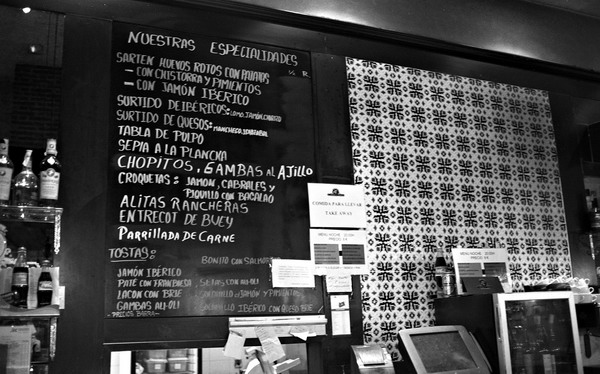 NUESTRAS ESPECIALIDADES
SARTEN HUEVOS ROTOS CON PATATAS
½ R.
- CON CHISTORRA Y PIMIENTOS
- CON JAMÓN IBERICO
SURTIDO DE IBÉRICOS: LOMO, JAMÓN, CHORIZO
SURTIDO DE QUESOS: MANCHEGO, IDIAZABAL
TABLA DE PULPO
SEPIA A LA PLANCHA
CHOPITOS, GAMBAS AL AJILLO
CROQUETAS: JAMON, CABRALES Y
PIQUILLO CON BACALAO
ALITAS RANCHERAS
ENTRECOT DE BUEY
PARRILLADA DE CARNE
TOSTAS:
BONITO CON
JAMÓN IBERICO
PATÉ CON FRAMBUESA
SETAS CON ALI-OLI
LACON CON BRIE
JAMÓN Y PIMIENTOS
GAMBAS ALI-OLI
IBERICO CON QUESO BRIE
-PRECIOS BARRA-
COMIDA PARA LLEVAR
TAKE AWAY